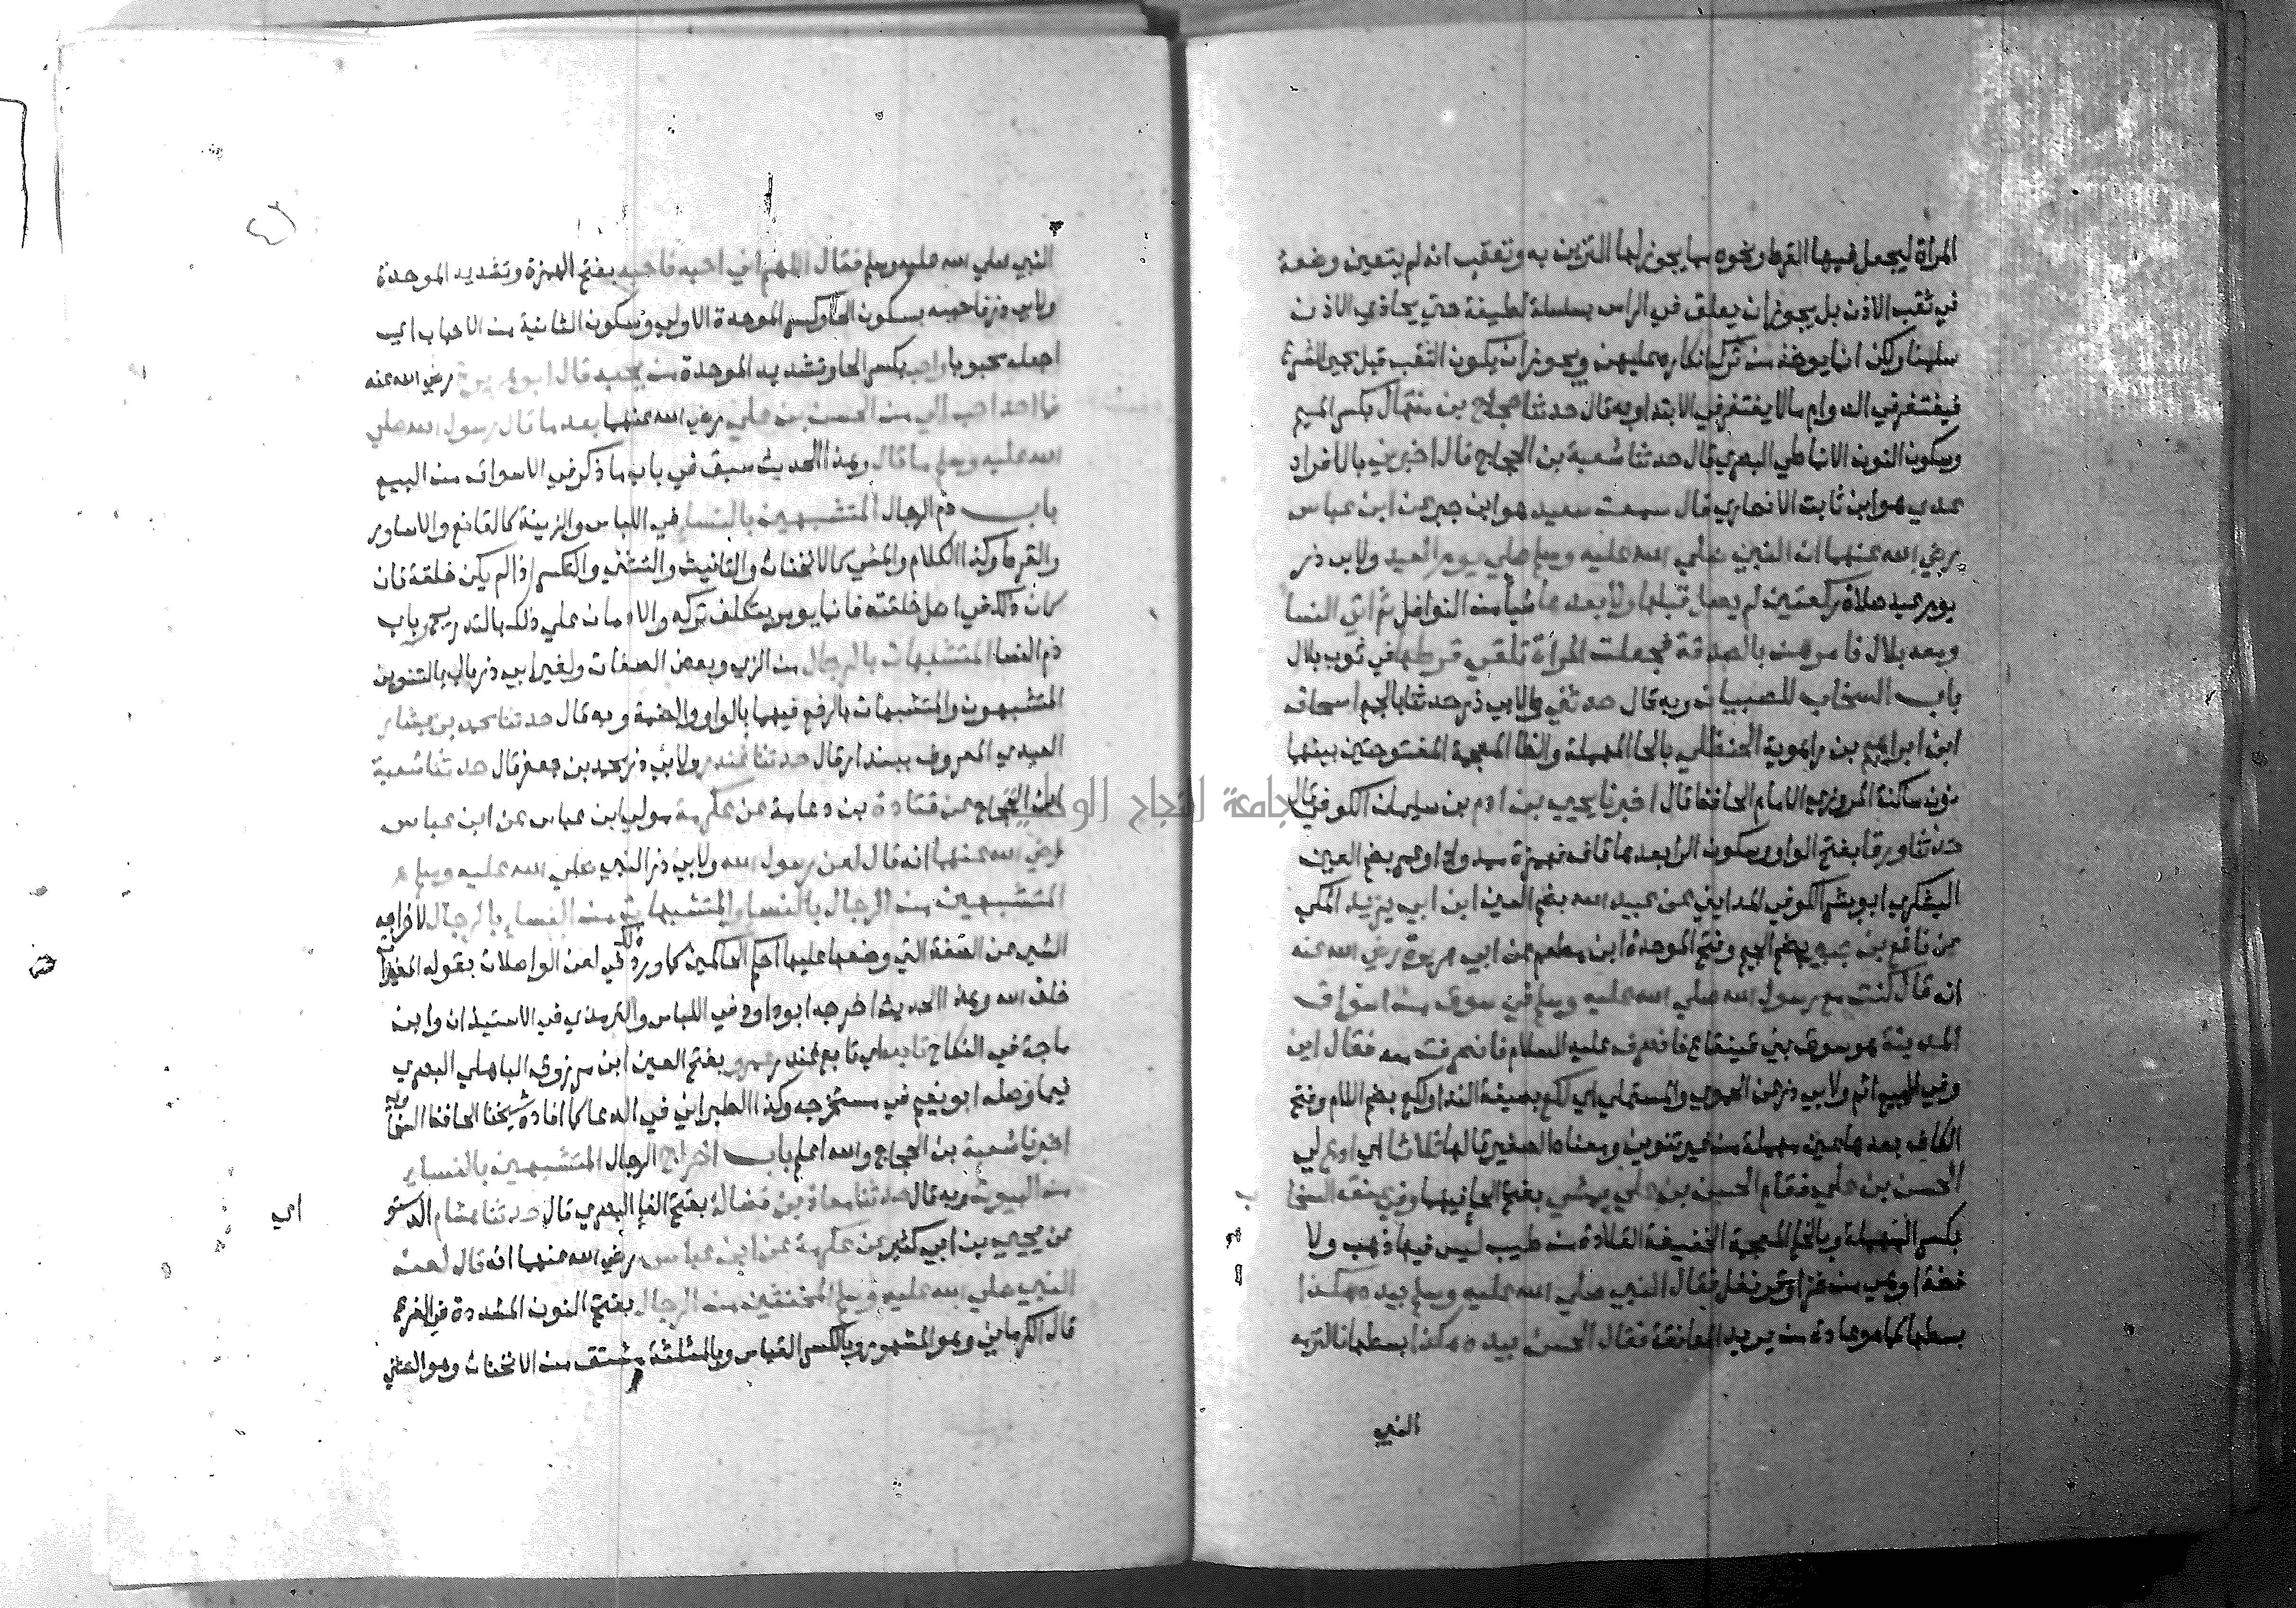 المراة ليجعل فيها القرط ونحوه مما يجوز لها التزين به وتعقب انه لم يتعين وضعه
في ثقب الاذن بل يجوز ان يعلق في الراس بسلسلة لطيفة حتي يحاذي الاذن
سلمنا ولكن انما يوخذ من ترك انكاره عليهن ويجوز ان يكون الثقب قبل مجي الشرع
فيغتفر في الدوام ما لا يغتفر في الابتدا وبه قال حدثنا حجاج بن منهال بكسر الميم
وسكون النون الانماطي البصري قال حدثنا شعبة بن الحجاج قال اخبرني بالافراد
عدي هو ابن ثابت الانصاري قال سمعت سعيد هو ابن جبير عن ابن عباس
رضي الله عنهما ان النبي صلي الله عليه وسلم صلي يوم العيد ولابي ذر
يوم عيد صلاة ركعتين لم يصل قبلها ولا بعدها شيأ من النوافل ثم اتي النسا
ومعه بلال فامرهن بالصدقة فجعلت المراة تلقي قرطها في ثوب بلال
باب السخاب للصبيان وبه قال حدثني ولابي ذر حدثنا بالجمع اسحاق
ابن ابراهيم بن راهوية الحنظلي بالحا المهملة والظا المعجمة المفتوحتين بينهما
نون ساكنة المروزي الامام الحافظ قال اخبرنا يحيي بن ادم بن سليمان الكوفي قال
حدثنا ورقا بفتح الواو وسكون الرا بعدها قاف فهمزة ممدودا ابن عمر بضم العين
اليشكري ابو بشر الكوفي المدايني عن عبيد الله بضم العين ابن ابي يزيد المكي
عن نافع بن جبير بضم الجيم وفتح الموحدة ابن مطعم عن ابي هريرة رضي الله عنه
انه قال كنت مع رسول الله صلي الله عليه وسلم في سوق من اسواق
المدينة هو سوق بني قينقاع فانصرف عليه السلام فانصرفت معه فقال اين
وفي البيع اثم ولابي ذر عن الحموي والمستملي اي لكع بصيغة الندا ولكع بضم اللام وفتح
الكاف بعدها عين مهملة من غير تنوين ومعناه الصغير قالها ثلاثا اي ادع لي
الحسن بن علي فقام الحسن بن علي يمشي بفتح الحا فيهما وفي عنقه السخا
بكسر المهملة وبالخا المعجمة الخفيفة القلادة من طيب ليس فيها ذهب ولا
فضة او هي من خرز او قرنفل فقال النبي صلي الله عليه وسلم بيده هكذا
بسطها كما هو عادة من يريد المعانقة فقال الحسن بيده هكذا بسطها فالتزمه
النبي
٤٦
النبي صلي الله عليه وسلم فقال اللهم اني احبه فاحبه بفتح الهمزة وتشديد الموحدة
ولابي ذر فاحببه بسكون الحا وكسر الموحدة الاولي وسكون الثانية من الاحباب اي
اجعله محبوبا واحب بكسر الحا وتشديد الموحدة من يحبه قال ابو هريرة رضي الله عنه
فما احد احب الي من الحسن بن علي رضي الله عنهما بعد ما قال رسول الله صلي
الله عليه وسلم ما قال وهذا الحديث سبق في باب ما ذكر في الاسواق من البيع
باب ذم الرجال المتشبهين بالنسا في اللباس والزينة كالمقانع والاساور
والقرط وكذا الكلام والمشي كالانخناث والتانيث والتثني والتكسر اذا لم يكن خلقة فان
كان ذلك في اصل خلقته فانما يومر بتكلف تركه والادمان علي ذلك بالتدريج وباب
ذم النسا المتشبهات بالرجال من الزي وبعض الصفات ولغير ابي ذر باب بالتنوين
المتشبهون والمتشبهات بالرفع فيهما بالواو والضمة وبه قال حدثنا محمد بن بشار
العبدي المعروف ببندار قال حدثنا غندر ولابي ذر محمد بن جعفر قال حدثنا شعبة
ابن الحجاج عن قتادة بن دعامة عن عكرمة مولي ابن عباس عن ابن عباس
رضي الله عنهما انه قال لعن رسول الله ولابي ذر النبي صلي الله عليه وسلم
المتشبهين من الرجال بالنسا والمتشبهات من النسا بالرجال لاخراجه
الشي عن الصفة التي وضعها عليها احكم الحاكمين كما ورد ذلك في لعن الواصلات بقوله المغيرات
خلق الله وهذا الحديث اخرجه ابو داود في اللباس والترمذي في الاستيذان وابن
ماجة في النكاح تابعه اي تابع غندر عمرو بفتح العين ابن مرزوق الباهلي البصري
فيما وصله ابو نعيم في مستخرجه وكذا الطبراني في الدعا كما افاده شيخنا الحافظ السخاوي
اخبرنا شعبة بن الحجاج والله اعلم باب اخراج الرجال المتشبهين بالنسا
من البيوت وبه قال حدثنا معاذ بن فضالة بفتح الفا البصري قال حدثنا هشام الدستو
اي
عن يحيي بن ابي كثير عن عكرمة عن ابن عباس رضي الله عنهما انه قال لعن
النبي صلي الله عليه وسلم المخنثين من الرجال بفتح النون المشددة في الفرع
قال الكرماني وهو المشهور وبالكسر القياس وبالمثلثة مشتق من الانخناث وهو التثني
جامعة النجاح الوطنية